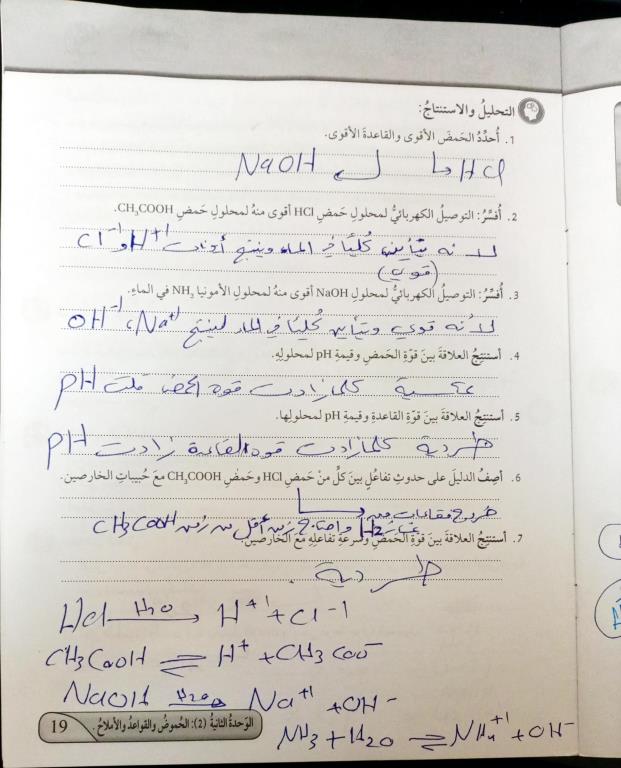 التحليلُ والاستنتاجُ:
1. أُحدِّدُ الحَمضَ الأقوى والقاعدةَ الأقوى.
HCl NaOH
2. أُفسِّرُ: التوصيلُ الكهربائيُّ لمحلولِ حَمضِ HCl أقوى منهُ لمحلولِ حَمضِ CH₃COOH.
لانه يتأين كُليًا في الماء وينتج أيونات H⁺¹ و Cl⁻¹
(قوي)
3. أُفسِّرُ: التوصيلُ الكهربائيُّ لمحلولِ NaOH أقوى منهُ لمحلولِ الأمونيا NH₃ في الماءِ.
لأنه قوي ويتأين كُليًا في الماء لينتج Na⁺¹، OH⁻¹
4. أستنتجُ العلاقةَ بينَ قوّةِ الحَمضِ وقيمةِ pH لمحلولِهِ.
عكسية كلما زادت قوه الحمض قلت pH
5. أستنتجُ العلاقةَ بينَ قوّةِ القاعدةِ وقيمةِ pH لمحلولِها.
طردية كلما زادت قوه القاعدة زادت pH
6. أصِفُ الدليلَ على حدوثِ تفاعُلٍ بينَ كلٍّ منْ حَمضِ HCl وحَمضِ CH₃COOH معَ حُبيباتِ الخارصين.
خروج فقاعات من
غاز H₂ واحتاج زمن أقل من زمن CH₃COOH
7. أستنتجُ العلاقةَ بينَ قوّةِ الحَمضِ وسُرعةِ تفاعلِهِ معَ الخارصين.
طردية.
HCl —H₂O→ H⁺¹ + Cl⁻¹
CH₃COOH ⇌ H⁺ + CH₃COO⁻
NaOH —H₂O→ Na⁺¹ + OH⁻
NH₃ + H₂O ⇌ NH₄⁺¹ + OH⁻
الوَحدةُ الثانيةُ (2): الحُموضُ والقواعدُ والأملاحُ. 19